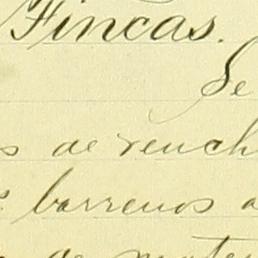 Fincas.
Se
s de rench
barrenos a
de mate